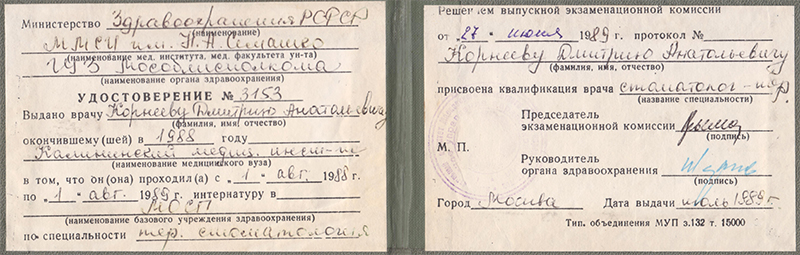 Министерство Здравоохранения РСФСР
(наименование)
ММСИ им. Н.А. Семашко
(наименование мед. института, мед. факультета ун-та)
ГУЗ Мособлисполкома
(наименование органа здравоохранения)
УДОСТОВЕРЕНИЕ № 3153
Выдано врачу Корнееву Дмитрию Анатольевичу
(фамилия, имя, отчество)
окончившему (шей) в 1988 году
Калининский медиц. инст-т
(наименование медицинского вуза)
в том, что он(она) проходил(а) с „1“ авг. 1988 г.
по „1“ авг. 1989 г. интернатуру в
МОСП
(наименование базового учреждения здравоохранения)
по специальности тер. стоматология
Решением выпускной экзаменационной комиссии
от „27“ июня 1989 г. протокол №
Корнееву Дмитрию Анатольевичу
(фамилия, имя, отчество)
присвоена квалификация врача стоматолог-тер.
(название специальности)
Председатель
экзаменационной комиссии
(подпись)
М. П.
Руководитель
органа здравоохранения
(подпись)
Город Москва Дата выдачи июль 1989г.
Тип. объединения МУП з.132 т. 15000